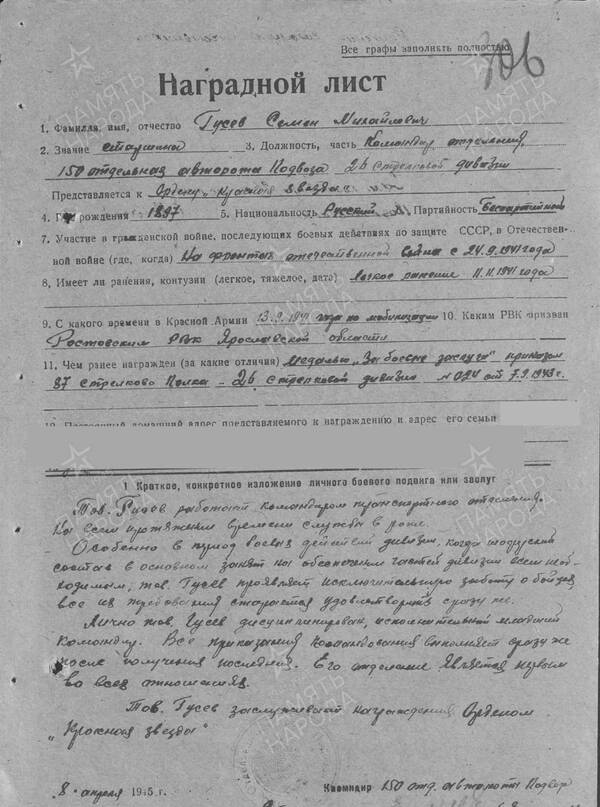 Все графы заполнять полностью
106
Наградной лист
1. Фамилия, имя, отчество Гусев Семен Михайлович
2. Звание старшина 3. Должность, часть Командир отделения,
150 отдельная авторота Подвоза 26 стрелковой дивизии
Представляется к Ордену „Красная звезда"
4. Год рождения 1897 5. Национальность Русский Партийность Беспартийный
7. Участие в гражданской войне, последующих боевых действиях по защите СССР, в Отечествен-
ной войне (где, когда) На фронтах отечественной войны с 24.9.1941 года
8. Имеет ли ранения, контузии (легкое, тяжелое, дата) Легкое ранение 11.11.1941 года
9. С какого времени в Красной Армии 13.9.1941 года по мобилизации 10. Каким РВК призван
Ростовским РВК Ярославской области
11. Чем ранее награжден (за какие отличия) Медалью „За боевые заслуги" приказом
87 стрелкового Полка - 26 стрелковой дивизии № 024 от 7.9.1943 г.
12. Постоянный домашний адрес представляемого к награждению и адрес его семьи
1 Краткое, конкретное изложение личного боевого подвига или заслуг
Тов. Гусев работает командиром транспортного отделения.
На всем протяжении времени службы в роте.
Особенно в период боевых действий дивизии, когда
состав в основном занят на обеспечении частей дивизии всем необ-
ходимым, тов. Гусев проявляет исключительную заботу о бойцах
все их требования старается удовлетворить сразу же.
Лично тов. Гусев дисциплинирован, исполнительный младший
командир. Все приказания командования выполняет сразу же
после получения последних. Его отделение является первым
во всех отношениях.
Тов. Гусев заслуживает награждения Орденом
„Красная звезда"
8 апреля 1945 г. Командир 150 отд. автороты Подвоза